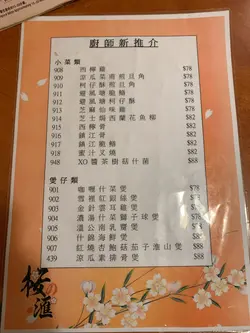 廚師新推介
小菜類
908 西檸雞 $78
909 涼瓜菜煎荳角 $78
910 柯仔酥煎荳角 $78
911 避風塘脆鱔 $78
912 避風塘柯仔酥 $78
913 芝麻汕味雞 $78
914 芝士焗西蘭花魚柳 $78
915 西檸骨 $88
916 鎮江骨 $88
917 鎮江脆鱔 $88
918 蜜汁叉燒 $88
948 XO醬茶樹菇什菌 $88
煲仔類
901 咖喱什菜煲 $78
902 雪裡紅銀絲煲 $78
903 金針雲耳雞煲 $78
904 濃湯什菜獅子球煲 $78
905 溫公南乳齋煲 $78
906 什錦海鮮煲 $78
907 紅燒杏鮑菇茄子淮山煲 $88
439 涼瓜素排骨煲 $88
桜滙